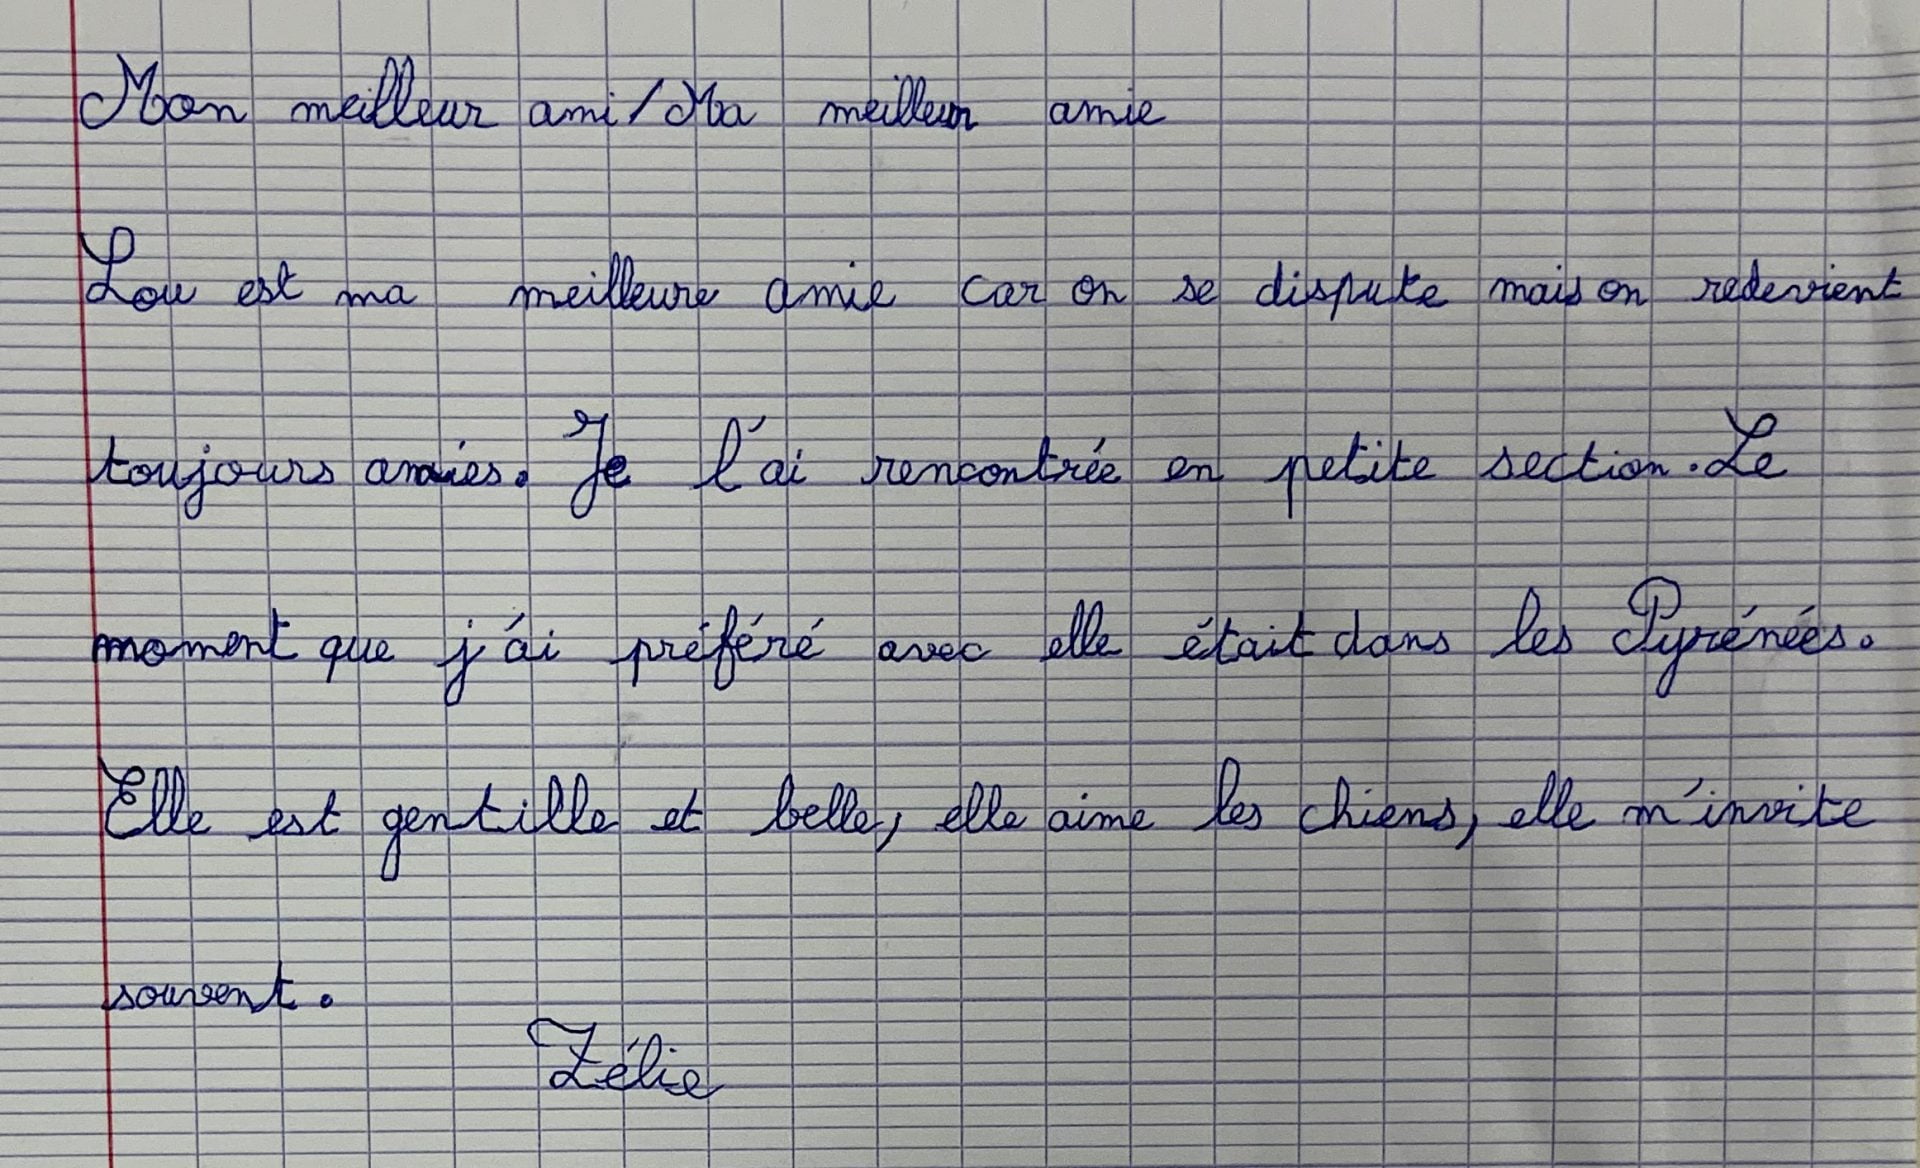 Mon meilleur ami/Ma meilleur amie
Lou est ma meilleure amie car on se dispute mais on redevient
toujours amies. Je l'ai rencontrée en petite section. Le
moment que j'ai préféré avec elle était dans les Pyrénées.
Elle est gentille et belle, elle aime les chiens, elle m'invite
souvent.
Zélie